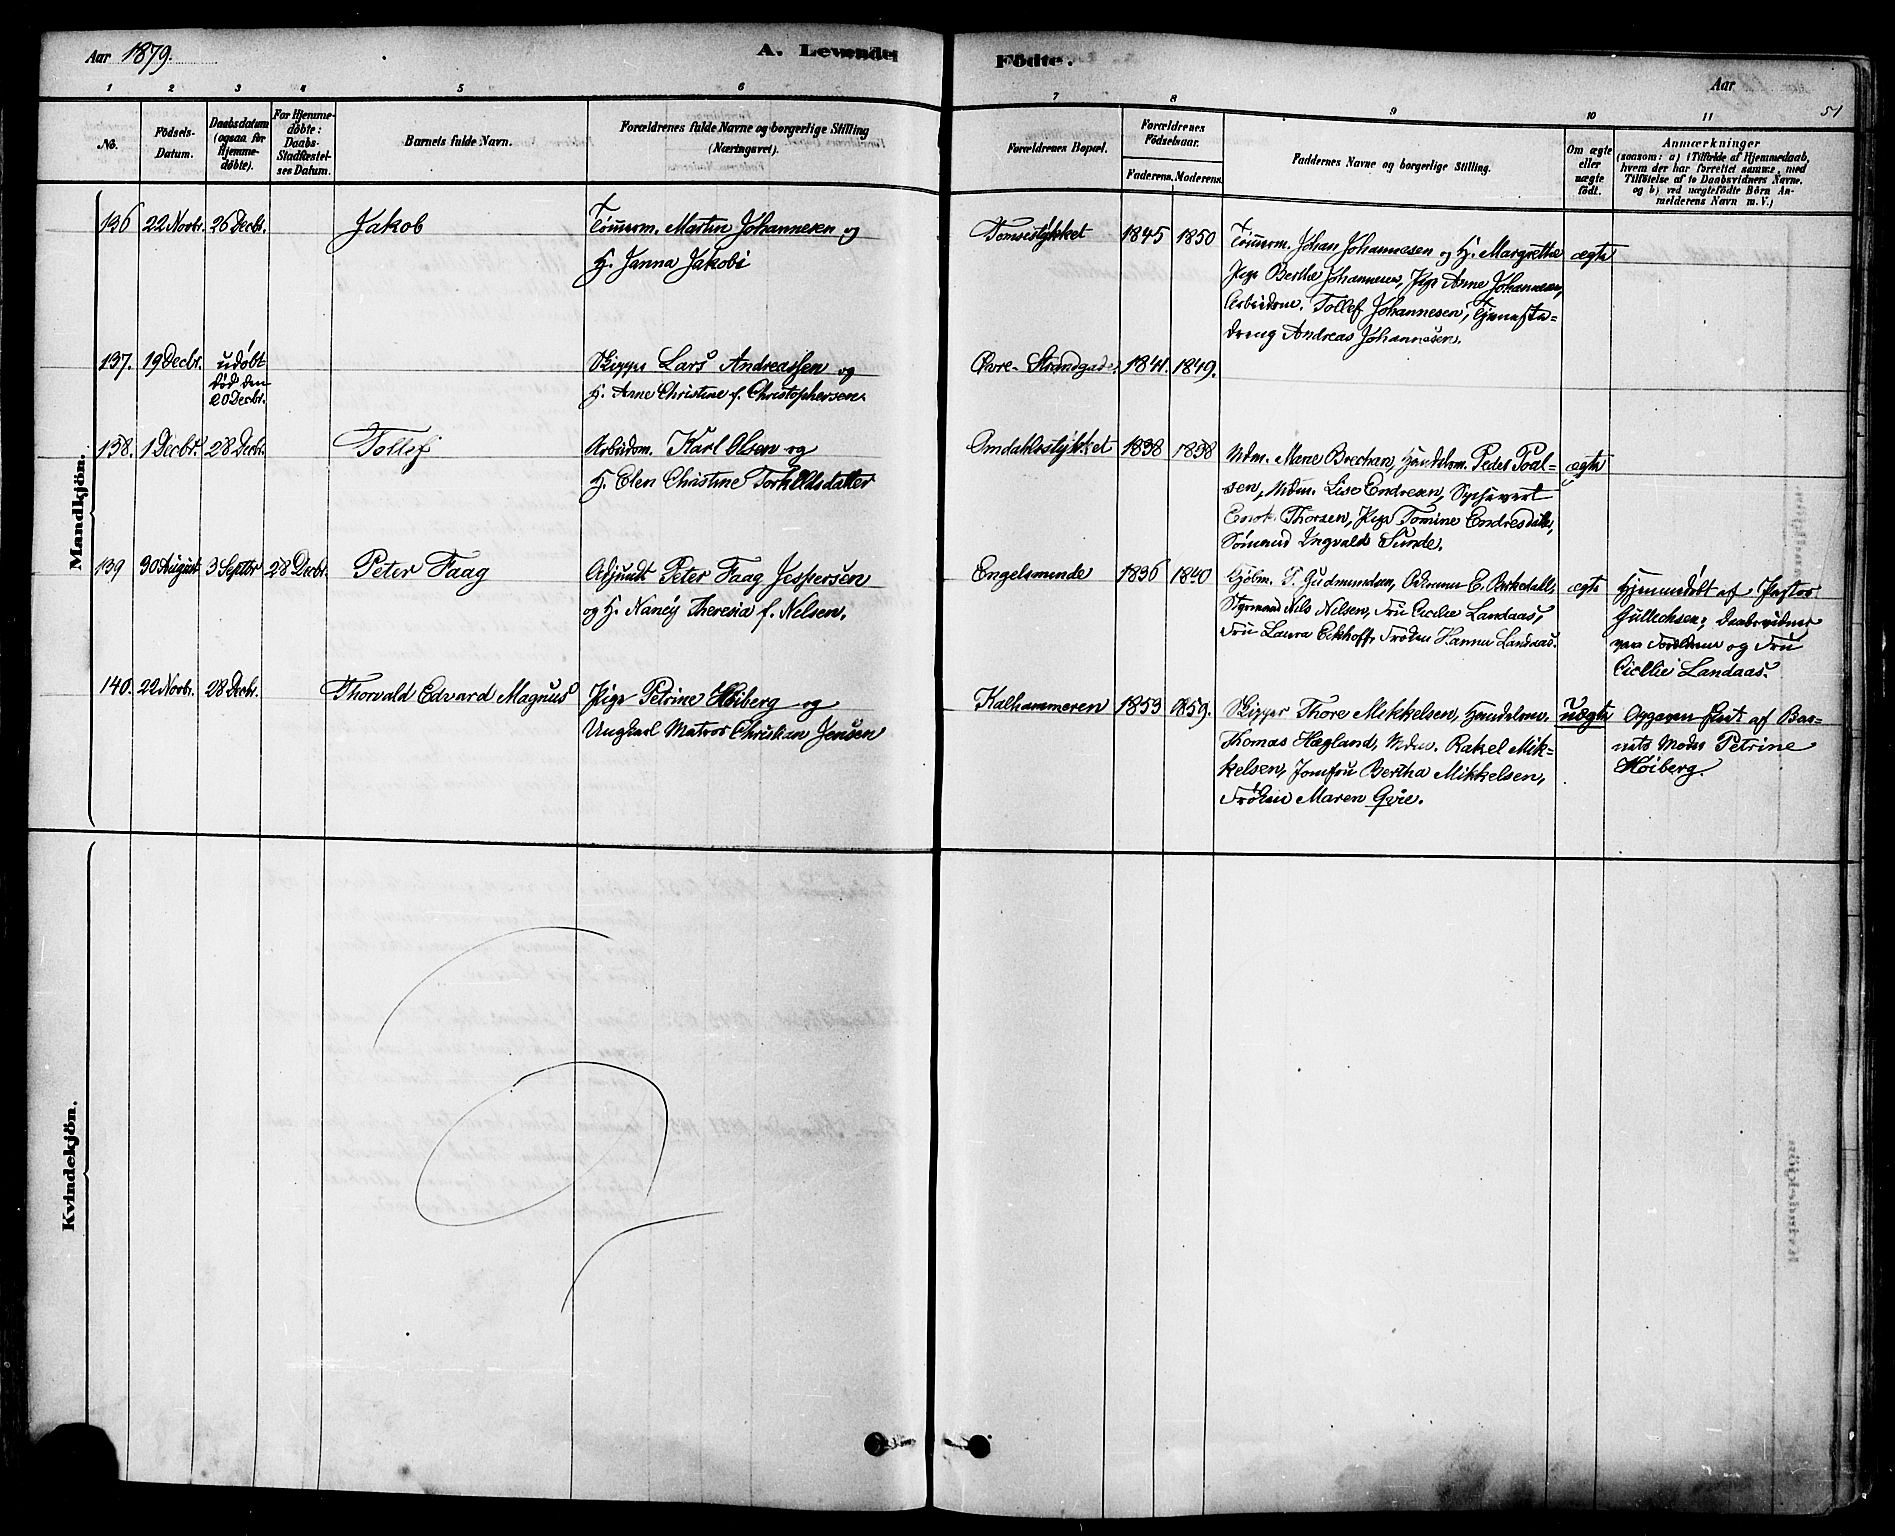 Aar 1879.
A. Levende
Födte.
Aar
51
1 2 3 4 5 6 7 8 9 10 11
No.
Födsels-Datum.
Daabsdatum (ogsaa for Hjemmedøbte).
For Hjemmedøbte: Daabs-Stadfæstelses Datum.
Barnets fulde Navn.
Forældrenes fulde Navne og borgerlige Stilling (Næringsvei).
Forældrenes Bopæl.
Forældrenes Födselsaar.
Faderens. Moderens.
Faddernes Navne og borgerlige Stilling.
Om ægte eller uægte födt.
Anmærkninger
(saasom: a) i Tilfælde af Hjemmedaab, hvem der har forrettet samme, med Tilföielse af to Daabsvidners Navne, og b) ved uægtefödte Börn Anmelderens Navn m. V.)
Mandkjön.
136 22 Novbr. 26 Decbr. Jakob
Tömmerm. Martin Johannesen og
H. Janna Jakobi
Tomsestykket 1845 1850
Tömmerm. Johan Johannesen og H. Margrethe
Pige Berthe Johannesen, Pige Anne Johannesen,
Arbeidsm. Tollef Johannesen, Tjeneste-
dreng Andreas Johannesen.
ægte
137. 19 Decbr. udøbt
död den
20 Decbr.
Skipper Lars Andreassen og
H. Anne Christine f. Christophersen.
Øvre-Strandgade. 1841. 1849.
138. 1 Decbr. 28 Decbr. Tollef
Arbeidsm. Karl Olsen og
H. Elen Christine Torkildsdatter
Omdahlsstykket 1838 1838
Mdm. Marie Brechan, Handelsm. Peder Poal-
sen, Mdm. Lise Endresen,
Enok Thorsen, Pige Tomine Endresdatter,
Sömand Ingvald Sunde.
ægte
139 30 August 3 Septbr 28 Decbr. Peter Faag
Adjunkt Peter Faag Jespersen
og H. Nancy Theresia f. Nelsen.
Engelsminde 1836 1840
Kjöbm. T. Gudmundsen, E. Berkedall,
Styrmand Nils Nelsen, Fru Cicilie Landaas,
Fru Laura Eckhoff, Fröken Hanna Landaas.
ægte
Hjemmedöbt af Pastor
Gullichsen; Daabsvidner
vare Forældrene og Fru
Cicilie Landaas.
140. 22 Novbr. 28 Decbr. Thorvald Edvard Magnus
Pige Petrine Höiberg og
Ungkarl Matros Christian Jensen
Kalhammeren 1853 1859.
Skipper Thore Mikkelsen, Handelsm.
Thomas Hægland, Mdm. Rakel Mik-
kelsen, Jomfru Bertha Mikkelsen,
Fröken Maren Qvie.
uægte
Opgaven skeet af Bar-
nets Moder Petrine
Höiberg.
Kvindekjön.